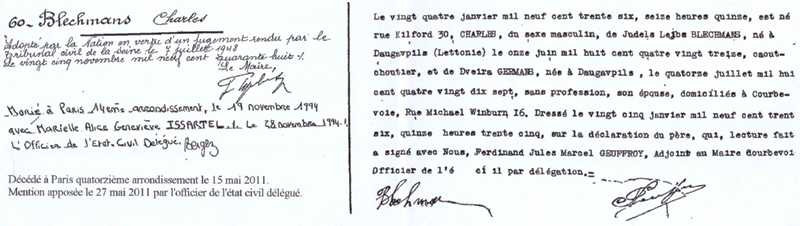 60 - Blechmans Charles
Adopté par la Nation en vertu d'un jugement rendu par le
Tribunal civil de la Seine le 7 juillet 1948
Le vingt cinq novembre mil neuf cent quarante huit
Le Maire,
Marié à Paris 14ème arrondissement, le 19 novembre 1994
avec Marielle Alice Geneviève ISSARTEL. Le 28 novembre 1994.
L'Officier de l'Etat-Civil Délégué.
Décédé à Paris quatorzième arrondissement le 15 mai 2011.
Mention apposée le 27 mai 2011 par l'officier de l'état civil délégué.
Le vingt quatre janvier mil neuf cent trente six, seize heures quinze, est né
rue Kilford 30, CHARLES, du sexe masculin, de Judels Lejbs BLECHMANS, né à
Daugavpils (Lettonie) le onze juin mil huit cent quatre vingt treize, caout-
choutier, et de Dveira GERMANS, née à Daugavpils, le quatorze juillet mil hui
cent quatre vingt dix sept, sans profession, son épouse, domiciliés à Courbe-
voie, Rue Michael Winburn I6. Dressé le vingt cinq janvier mil neuf cent trent
six, quinze heures trente cinq, sur la déclaration du père, qui, lecture fait
a signé avec Nous, Ferdinand Jules Marcel GEUFFROY, Adjoint au Maire Courbevoi
Officier de l'é ci il par délégation.
Blechmans